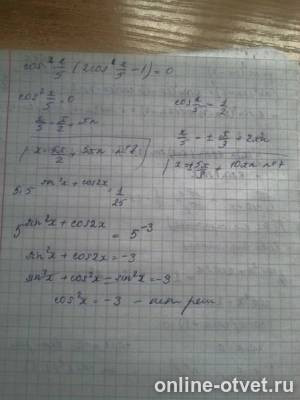 cos² x/5 (2cos² x/5 − 1) = 0
cos² x/5 = 0
cos x/5 = 1/2
x/5 = π/2 + πn
x/5 = ± π/3 + 2πn
x = 5π/2 + 5πn n∈Z
x = ± 5π/3 + 10πn n∈Z
5·5^(sin²x + cos2x) = 1/25
5^(sin²x + cos2x) = 5^(−3)
sin²x + cos2x = −3
sin²x + cos²x − sin²x = −3
cos²x = −3 – нет реш
online-otvet.ru